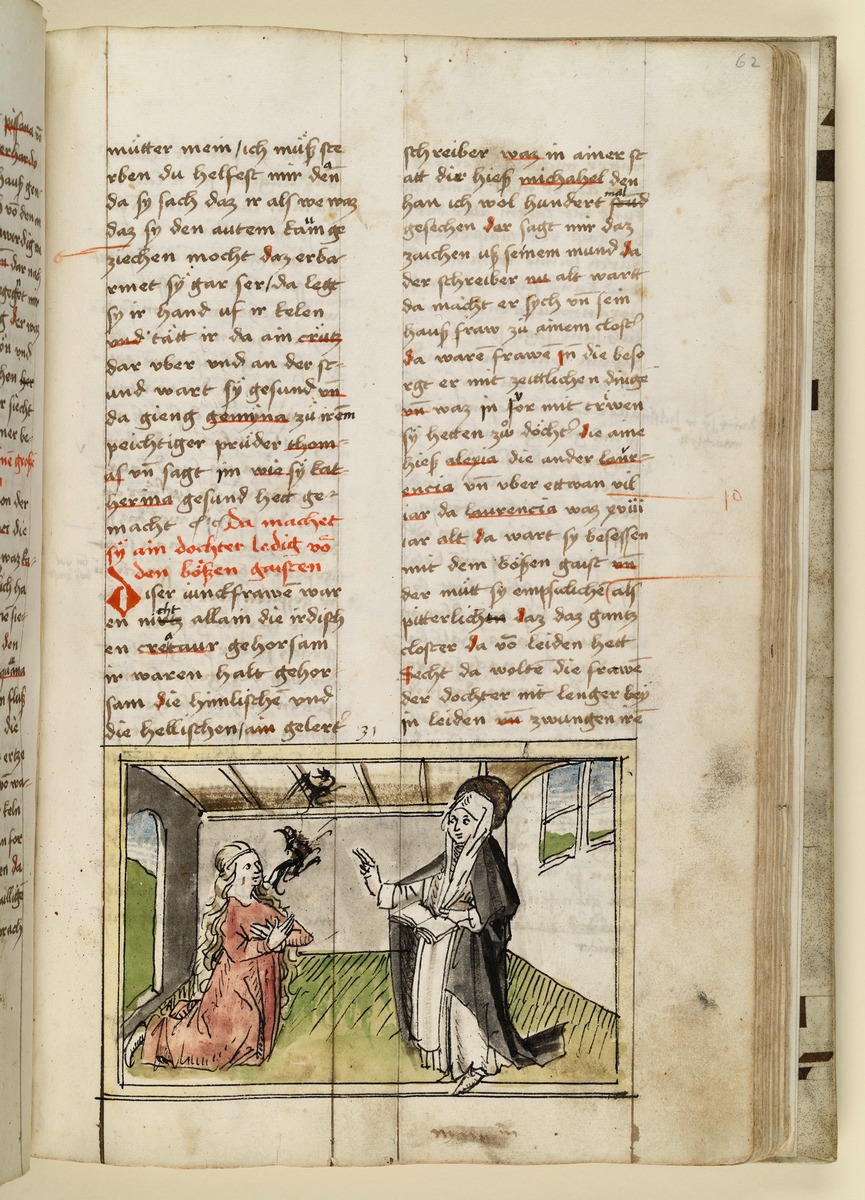 62
mu̇tter mein / ich mu̇ß ste
rben du helfest mir den̄
da sy sach daz ir als we waz
daz sy den autem kam ge
ziechen mocht daz erba-
rmet sy̋ gar ser / da legt
sy ir hand uf ir kelen
vnd tått ir da ain crütz
dar vber und an der st-
und wart sy̋ gesund vn̄
da gieng gemina zů irem
peichtiger prüder thom-
as vn̄ sagt im wie sy̋ kat-
herina gesund hett ge-
macht Da machet
sy̋ ain dochter ledig vō
den bößen gaisten
Diser iunckfrawē war
en nicht allain die irdisch
en creataur gehorsam
ir waren halt gehor
sam die hymlischē vnd
die hellischen / ain gelert᾽
31
schreiber waz in ainer st
att dir hieß michahel den
han ich wol hundert mal
gesechen der sagt mir daz
zaichen uß seinem mund da
der schreiber nu alt wartt
da macht er sych vn̄ sein
hauß fraw zů ainem clost᾽
da warē frawē in die beso
rgt er mit zeittlichen dinge
vn̄ waz in vor mit trẅen
sy̋ hetten zwů döcht᾽ die aine
hieß alexia die ander laur-
encia vn̄ vber ettwan vil
10
iar da laurencia waz xviii
iar alt da wart sy besessen
mit dem bößen gaist vn̄
der mütt sy empsiclichē als
pitterlichen daz daz gantz
closter da vō leiden hett
Secht da wolte die frawē
der dochter nit lenger bey
in leiden vn̄ zwungen irē